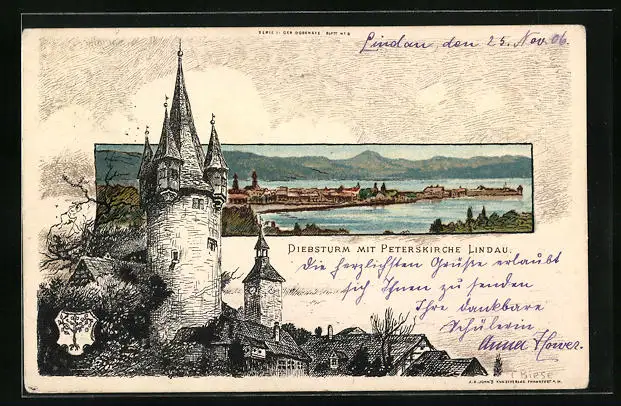 SERIE I: DER BODENSEE BLATT No 8
Lindau, den 25. Nov. 06.
DIEBSTURM MIT PETERSKIRCHE LINDAU.
Die herzlichsten Grüße erlaubt
sich Ihnen zu senden
Ihre dankbare
Schülerin
Anna
BIESE
KUNSTVERLAG, FRANKFURT A. M.